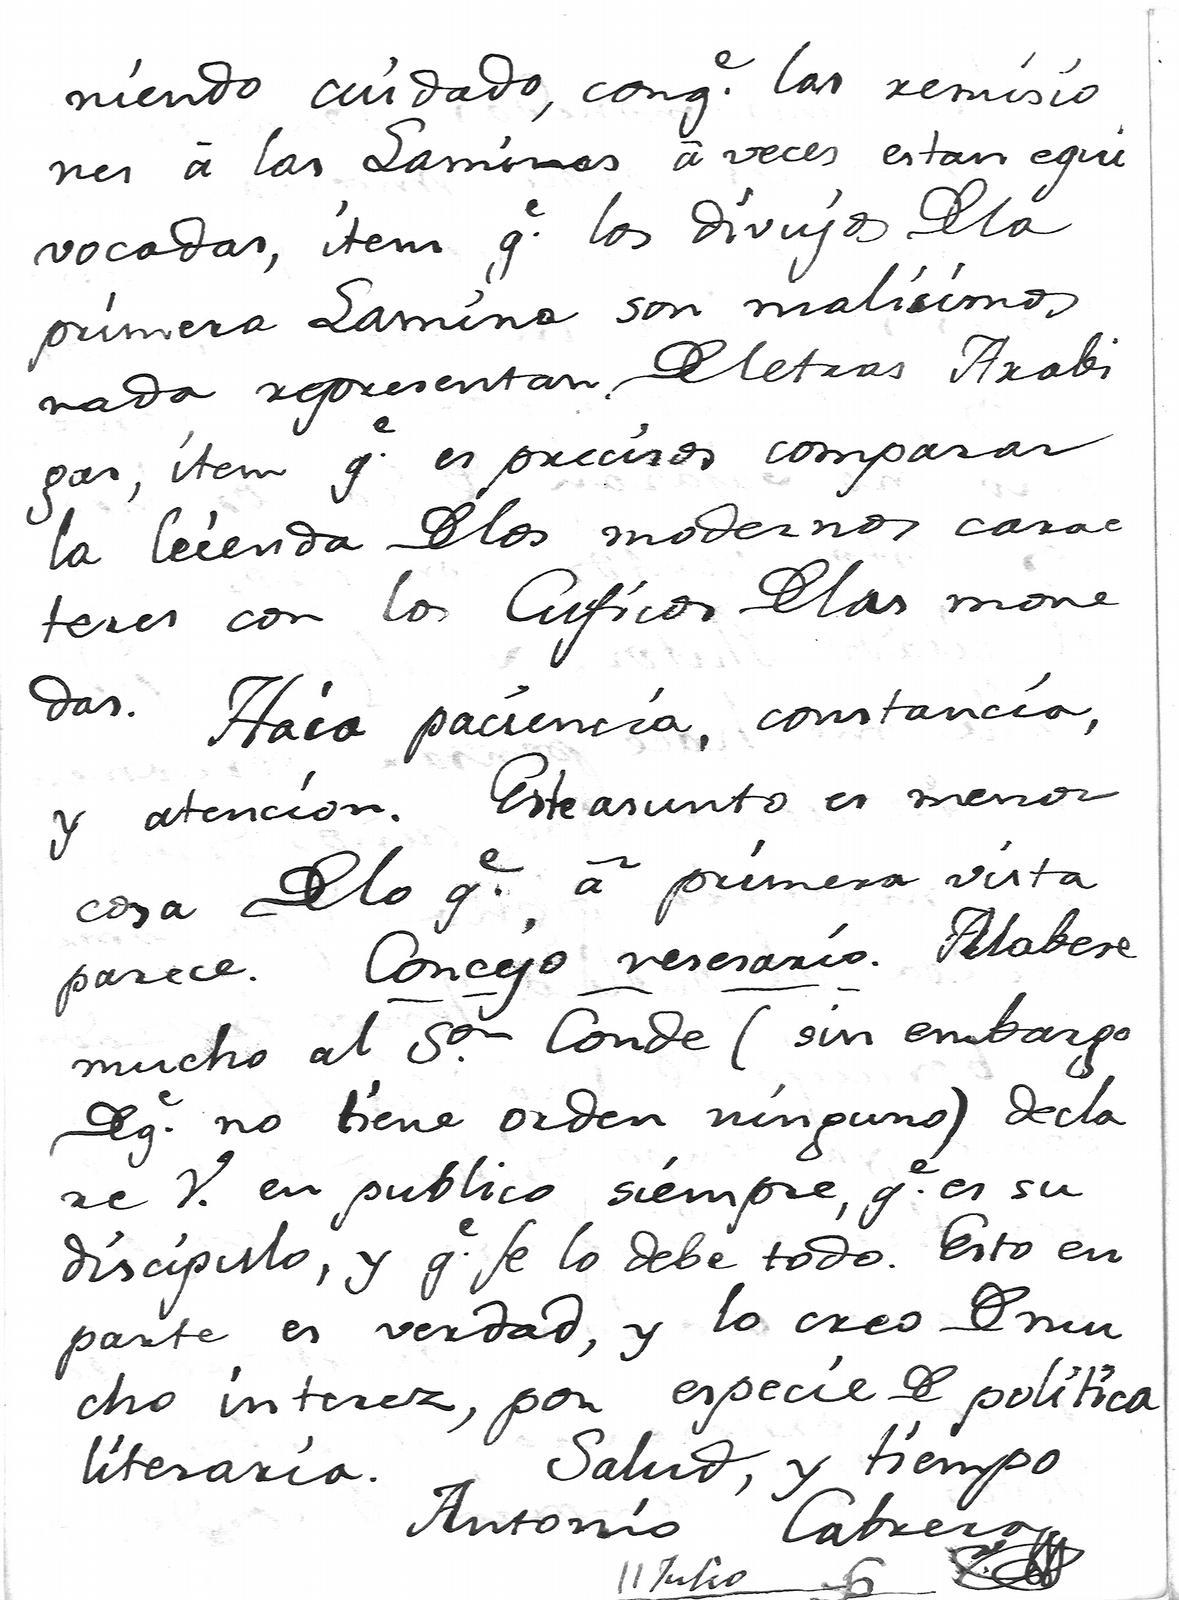 niendo cuidado, conq.e las remisio
nes ā las Laminas ā veces estan equi
vocadas, item q.e los divujos Dla
primera Lamina son malisimos
nada representan Dletras Arabi
gas, item q.e es preciso comparar
la leienda Dlos modernos carac
teres con los Cuficos Dlas mone
das. Haia paciencia, constancia,
y atencion. Este asunto es menor
cosa Dlo q.e ā primera vista
parece. Concejo nesesario. Alabese
mucho al S.or Conde (sin embargo
Dq.e no tiene orden ninguno) decla
re V. en publico siempre, q.e es su
discipulo, y q.e se lo debe todo. Esto en
parte es verdad, y lo creo Dmu
cho interez, por especie D politica
literaria. Salud, y tiempo
Antonio Cabrera
11 Julio